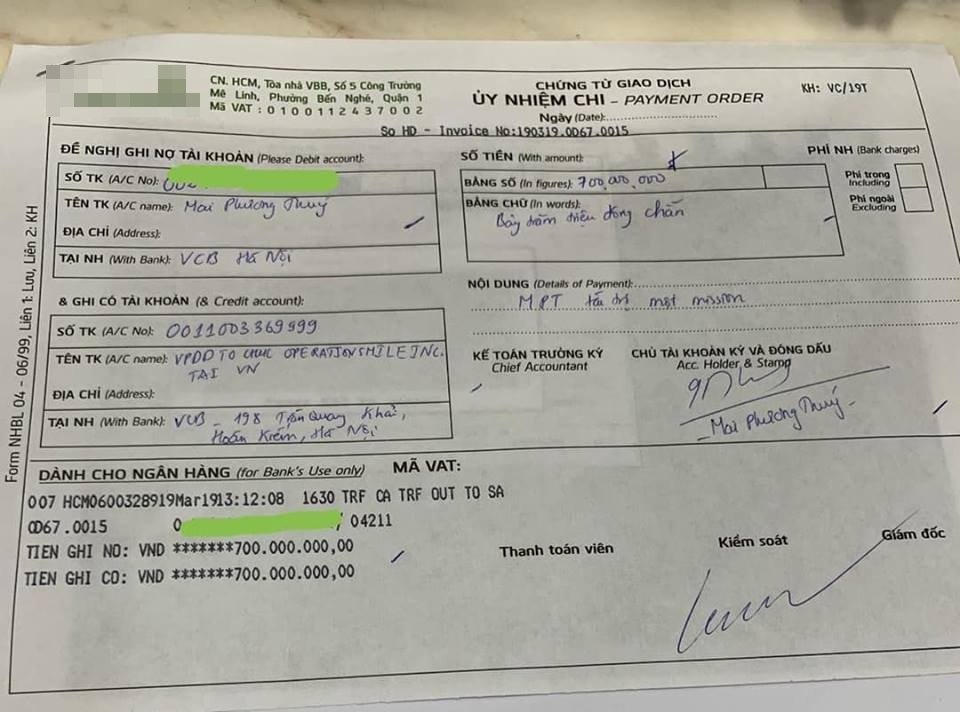 CN. HCM, Tòa nhà VBB, Số 5 Công Trường
Mê Linh, Phường Bến Nghé, Quận 1
Mã VAT : 0100112437002
CHỨNG TỪ GIAO DỊCH
ỦY NHIỆM CHI – PAYMENT ORDER
Ngày (Date):
KH: VC/19T
So HD - Invoice No:190319.0067.0015
ĐỀ NGHỊ GHI NỢ TÀI KHOẢN (Please Debit account):
SỐ TK (A/C No):
TÊN TK (A/C name): Mai Phương Thuý
ĐỊA CHỈ (Address):
TẠI NH (With Bank): VCB Hà Nội
SỐ TIỀN (With amount):
BẰNG SỐ (In figures): 700,000,000
BẰNG CHỮ (In words):
Bảy trăm triệu đồng chẵn
PHÍ NH (Bank charges)
Phí trong
Including
Phí ngoài
Excluding
NỘI DUNG (Details of Payment):
MPT tài trợ một mission
& GHI CÓ TÀI KHOẢN (& Credit account):
SỐ TK (A/C No): 0011003369999
TÊN TK (A/C name): VPDD TO CHUC OPERATION SMILE INC.
TAI VN
ĐỊA CHỈ (Address):
TẠI NH (With Bank): VCB - 198 Trần Quang Khải,
Hoàn Kiếm, Hà Nội
KẾ TOÁN TRƯỞNG KÝ
Chief Accountant
CHỦ TÀI KHOẢN KÝ VÀ ĐÓNG DẤU
Acc. Holder & Stamp
Mai Phương Thuý
Form NHBL 04 - 06/99, Liên 1: Lưu, Liên 2: KH
DÀNH CHO NGÂN HÀNG (for Bank's Use only)
MÃ VAT:
007 HCM0600328919Mar1913:12:08 1630 TRF CA TRF OUT TO SA
0067.0015 0 / 04211
TIEN GHI NO: VND *******700.000.000,00
TIEN GHI CO: VND *******700.000.000,00
Thanh toán viên
Kiểm soát
Giám đốc